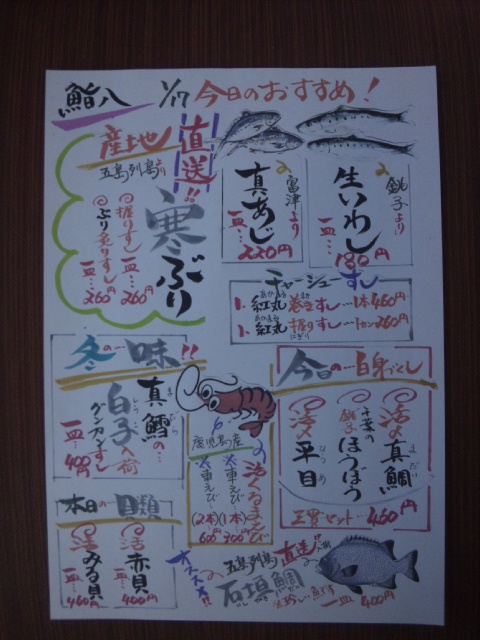 鮨八 1/17 今日のおすすめ!
産地直送!!
五島列島より
寒ぶり
握りすし 一皿…260円
ぶり炙りすし 一皿…260円
富津より
真あじ
一皿…220円
銚子より
生いわし
一皿…180円
チャーシューすし
1、紅丸巻きすし…1本460円
1、紅丸握りすし…1カン260円
冬の…味!!
真鱈の…
白子入荷
グンカンすし
一皿…400円
鹿児島産の
活くるまえび
車えび…(1本)300円
車えび…(2本)600円
今日の…白身づくし
活〆真鯛
千葉の銚子ほうぼう
活〆平目
三貫セット…460円
本日の…貝類
活赤貝
一皿…400円
活みる貝
一皿…460円
オススメ!!
五島列島直送!!
石垣鯛
一皿…400円